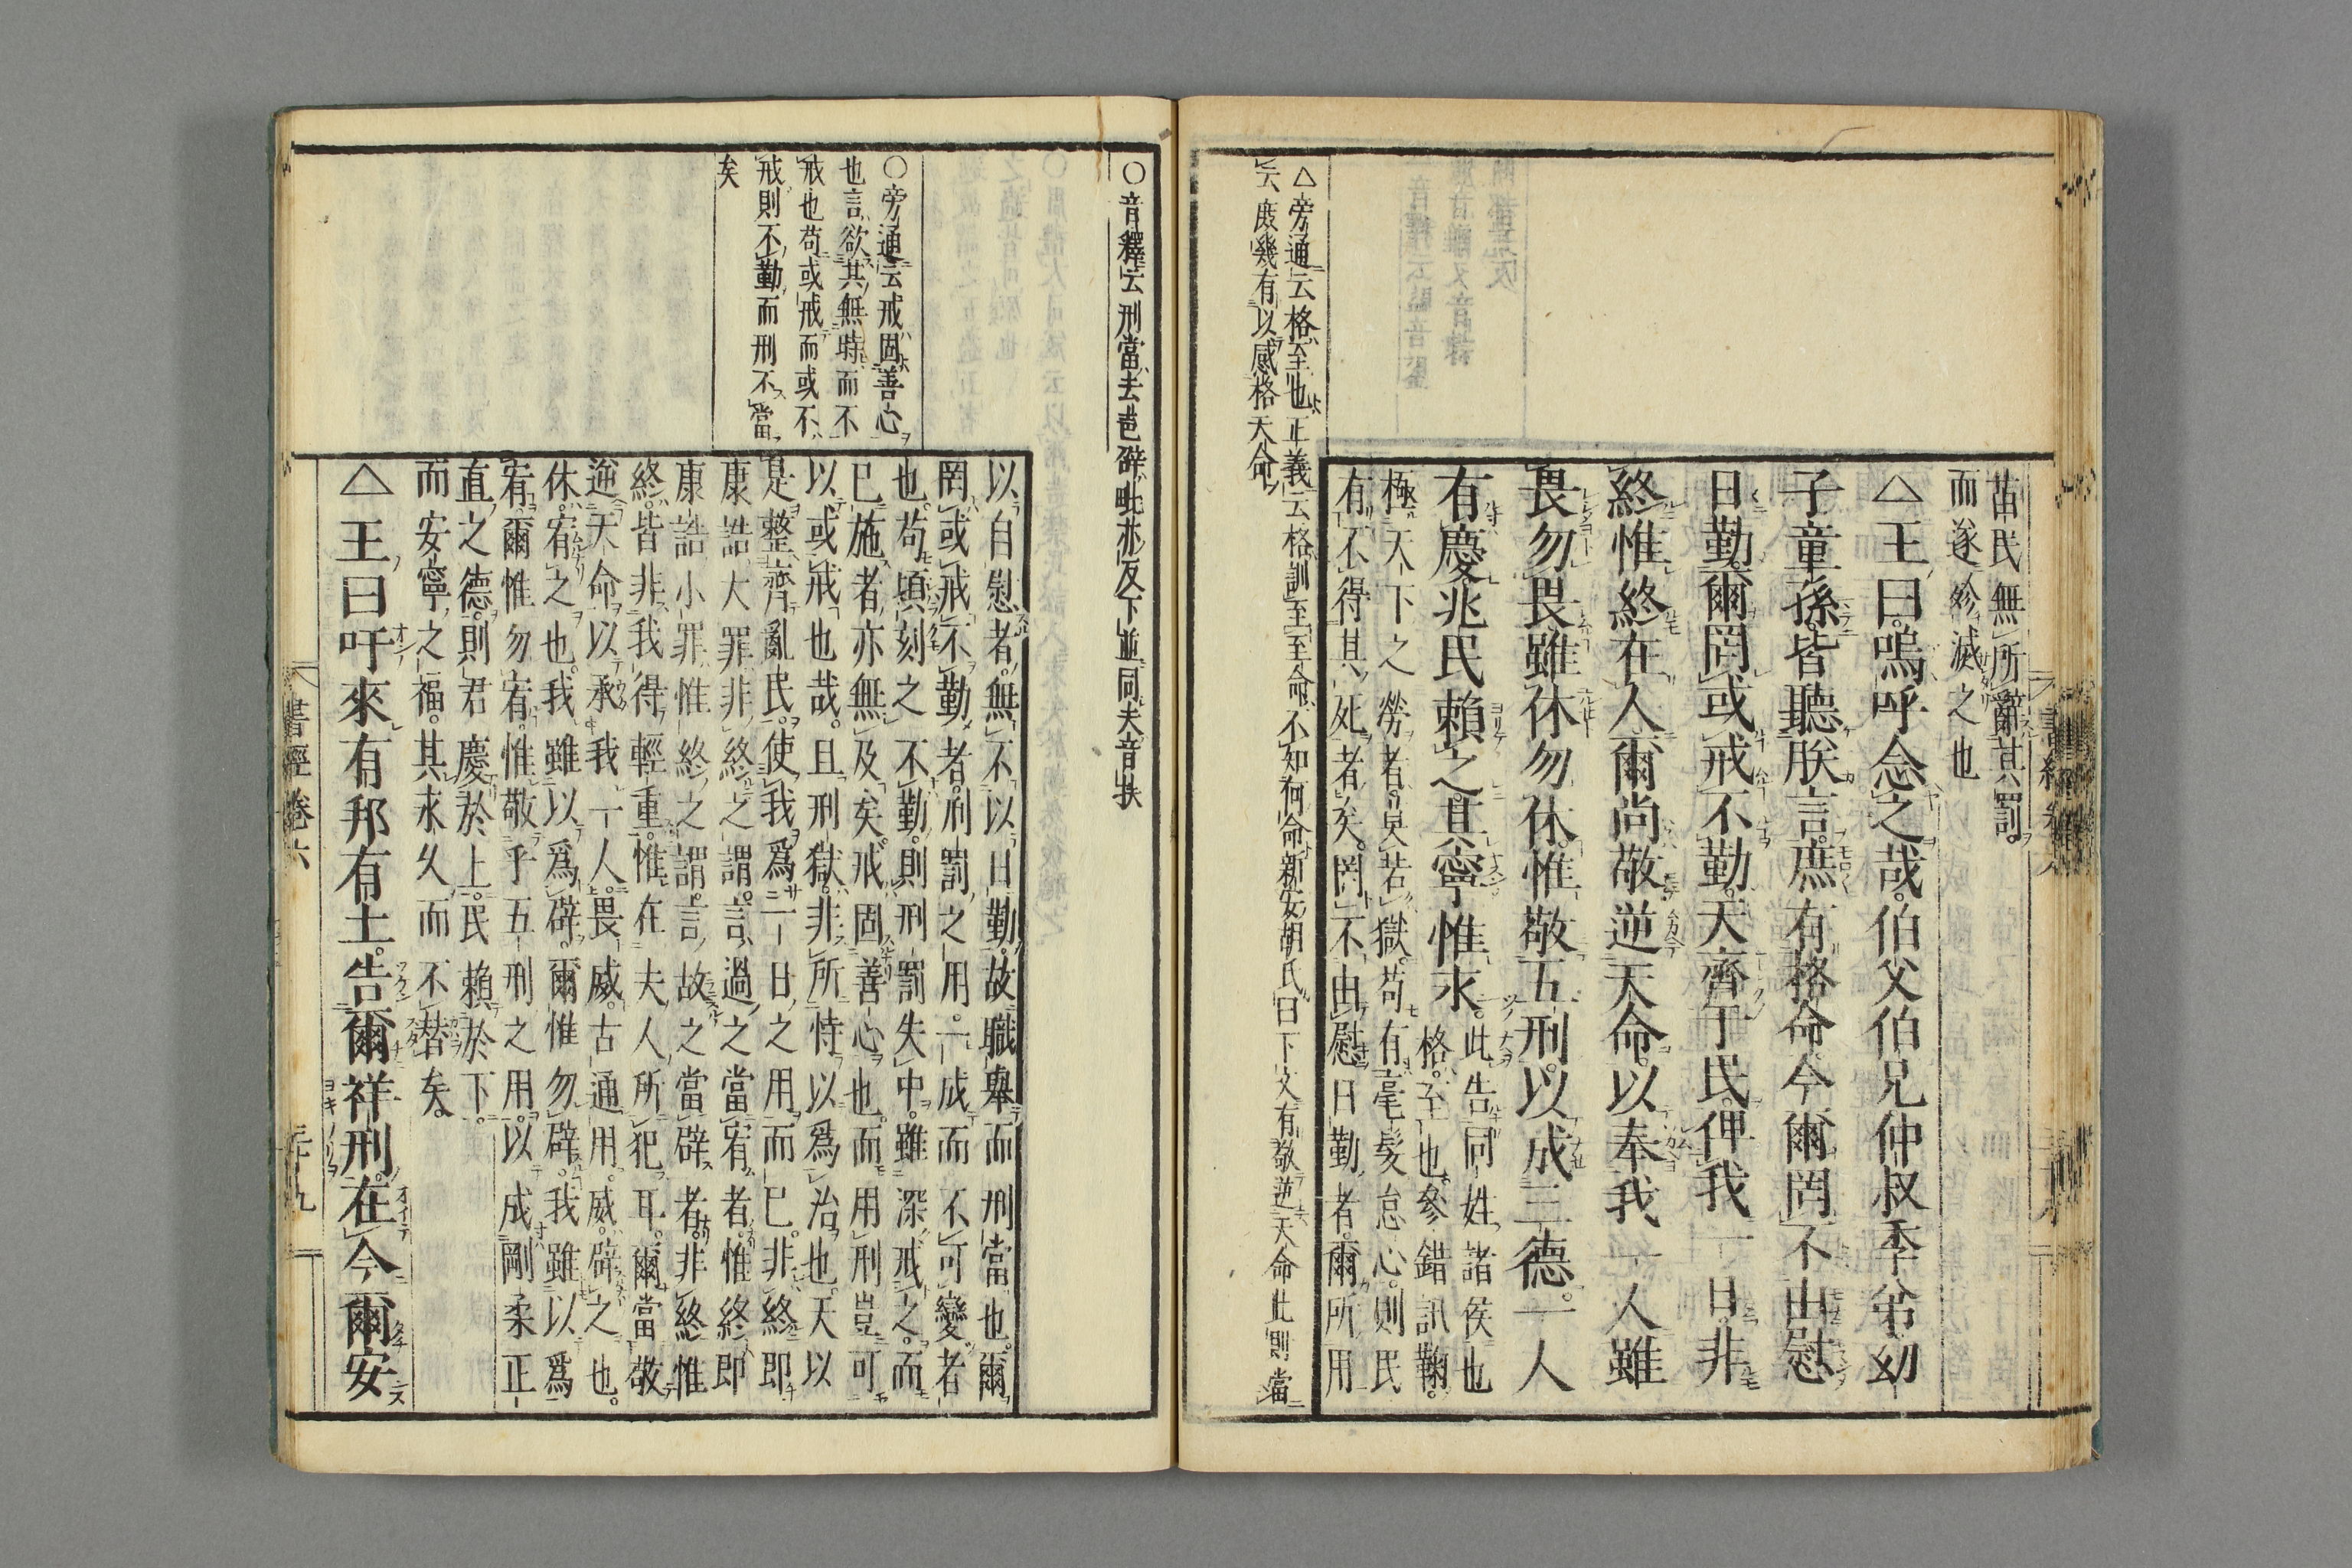 苗民無所辭其罰
而遂殄滅之也
△王曰嗚呼念之哉伯父伯兄仲叔季弟幼
子童孫皆聽朕言庶有格命今爾罔不由慰
日勤爾罔或戒不勤天齊于民俾我一日非
終惟終在人爾尚敬逆天命以奉我一人雖
畏勿畏雖休勿休惟敬五刑以成三德一人
有慶兆民賴之其寧惟永
此告同姓諸侯也
格至也參錯訊鞠
極天下之勞者莫若獄苟有毫髮怠心則民
有不得其死者矣罔不由慰日勤者爾所用
△旁通云格至也正義云格訓至至命不如何命新安胡氏曰下文有敬逆天命此則當
云庶幾有以感格天命
○音釋云刑當去聲辟毗亦反下並同夫音扶
○旁通云戒固善心
也言欲其無時而不
戒也苟或戒而或不
戒則不勤而刑不當
矣
以自慰者無不以日勤故職舉而刑當也爾
罔或戒不勤者刑罰之用一成而不可變者
也苟頃刻之不勤則刑罰失中雖深戒之而
已施者亦無及矣戒固善心也而用刑豈可
以或戒也哉且刑獄非所恃以爲治也天以
是整齊亂民使我爲一日之用而已非終即
康誥大罪非終之謂言過之當宥者惟終即
康誥小罪惟終之謂言故之當辟者非終惟
終皆非我得輕重惟在夫人所犯耳爾當敬
逆天命以承我一人畏威古通用威辟之也
休宥之也我雖以爲辟爾惟勿辟我雖以爲
宥爾惟勿宥惟敬乎五刑之用以成剛柔正
直之德則君慶於上民賴於下
而安寧之福其永久而不替矣
△王曰吁來有邦有土告爾祥刑在今爾安
書經卷六
三十九